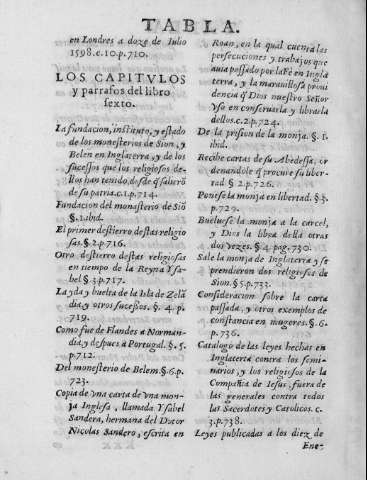 TABLA.
en Londres a doze de Iulio
1598.c.10.p.710.
LOS CAPITVLOS
y parrafos del libro
sexto.
La fundacion, instituto, y estado
de los monesterios de Sion, y
Belen en Inglaterra, y de los
sucessos que los religiosos de-
llos han tenido, desde q̃ saliero
de su patria.c.1.p.714.
Fundacion del monasterio de Siõ
§.1.ibid.
El primer destierro destas religio
sas. §.2.p.716.
Otro destierro destas religiosas
en tiempo de la Reyna Ysa-
bel §.3.p.717.
La yda y buelta de la Isla de Zelã
dia, y otros sucessos. §. 4. p.
719.
Como fue de Flandes a Norman-
dia, y despues a Portugal. §. 5.
p.712.
Del monesterio de Belem.§.6.p.
723.
Copia de vna carta de vna mon-
ja Inglesa, llamada Ysabel
Sandera, hermana del Dotor
Nicolas Sandero, escrita en
Roan, en la qual cuenta las
persecuciones y trabajos que
auia passado por la Fè en Ingla
terra, y la marauillosa proui
dencia q̃ Dios nuestro Señor
vso en conseruarla y librarla
dellos.c.2.p.724.
De la presion de la monja. §. 1.
ibid.
Recibe cartas de su Abedessa, or
denandole q̃ procure su liber-
tad §. 2.p.726.
Ponese la monja en libertad. §.3.
p.729.
Bueluese la monja a la carcel,
y Dios la libra della otras
dos vezes. §. 4. pag.730.
Sale la monja de Inglaterra y se
prendieron dos religiosos de
Sion. §5.p.733.
Consideracion sobre la carta
passada, y otros exemplos de
constancia en mugeres.§.6.
p.736.
Catalogo de las leyes hechas en
Inglaterra contra los semi-
narios, y los religiosos de la
Compañia de Iesus, fuera de
las generales contra todos
los Sacerdotes y Catolicos. c.
3.p.738.
Leyes publicadas a los diez de
Ene-